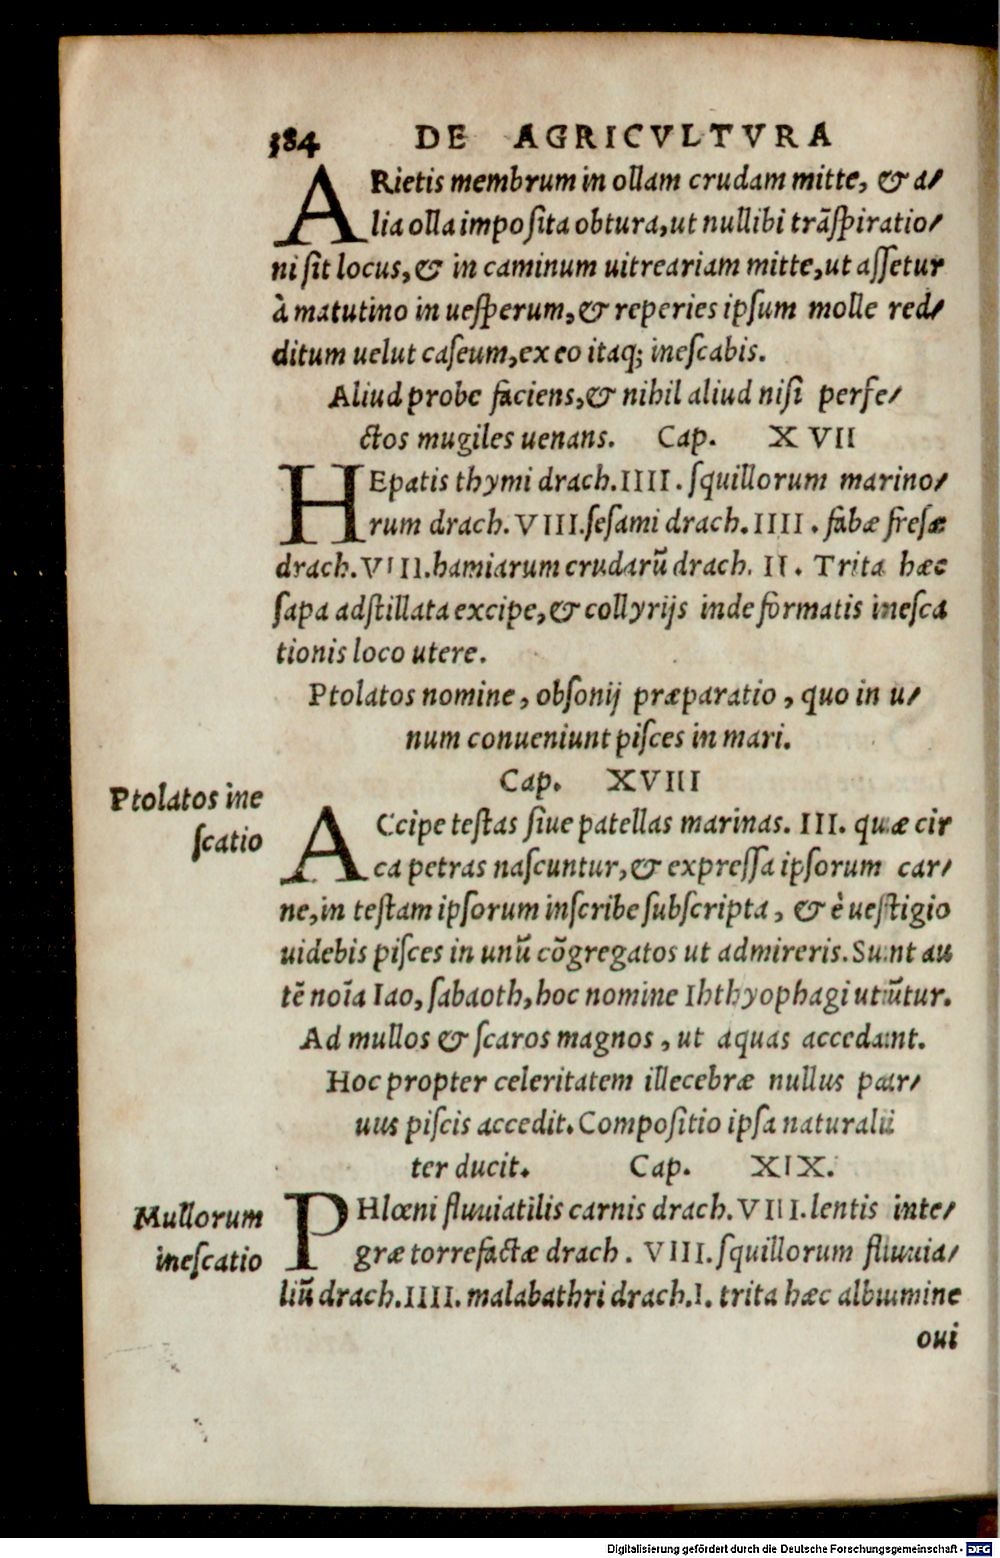 384 DE AGRICVLTVRA
ARietis membrum in ollam crudam mitte, & a/
lia olla imposita obtura, ut nullibi trāspiratio/
ni sit locus, & in caminum uitreariam mitte, ut assetur
à matutino in uesperum, & reperies ipsum molle red/
ditum uelut caseum, ex eo itaq; inescabis.
Aliud probe faciens, & nihil aliud nisi perfe/
ctos mugiles uenans. Cap. XVII
HEpatis thymi drach. IIII. squillorum marino/
rum drach. VIII. sesami drach. IIII. fabæ fresæ
drach. VIII. hamiarum crudarū drach. II. Trita hæc
sapa adstillata excipe, & collyrijs inde formatis inesca
tionis loco utere.
Ptolatos nomine, obsonij præparatio, quo in u/
num conueniunt pisces in mari.
Cap. XVIII
Ptolatos ine
scatio
ACcipe testas siue patellas marinas. III. quæ cir
ca petras nascuntur, & expressa ipsorum car/
ne, in testam ipsorum inscribe subscripta, & è uestigio
uidebis pisces in unū cōgregatos ut admireris. Sunt au
tē noīa Iao, sabaoth, hoc nomine Ihthyophagi utūtur.
Ad mullos & scaros magnos, ut aquas accedant.
Hoc propter celeritatem illecebræ nullus par/
uus piscis accedit. Compositio ipsa naturali
ter ducit. Cap. XIX.
Mullorum
inescatio
PHlœni fluuiatilis carnis drach. VIII. lentis inte/
græ torrefactæ drach. VIII. squillorum fluuia/
liū drach. IIII. malabathri drach. I. trita hæc albumine
oui
Digitalisierung gefördert durch die Deutsche Forschungsgemeinschaft - DFG